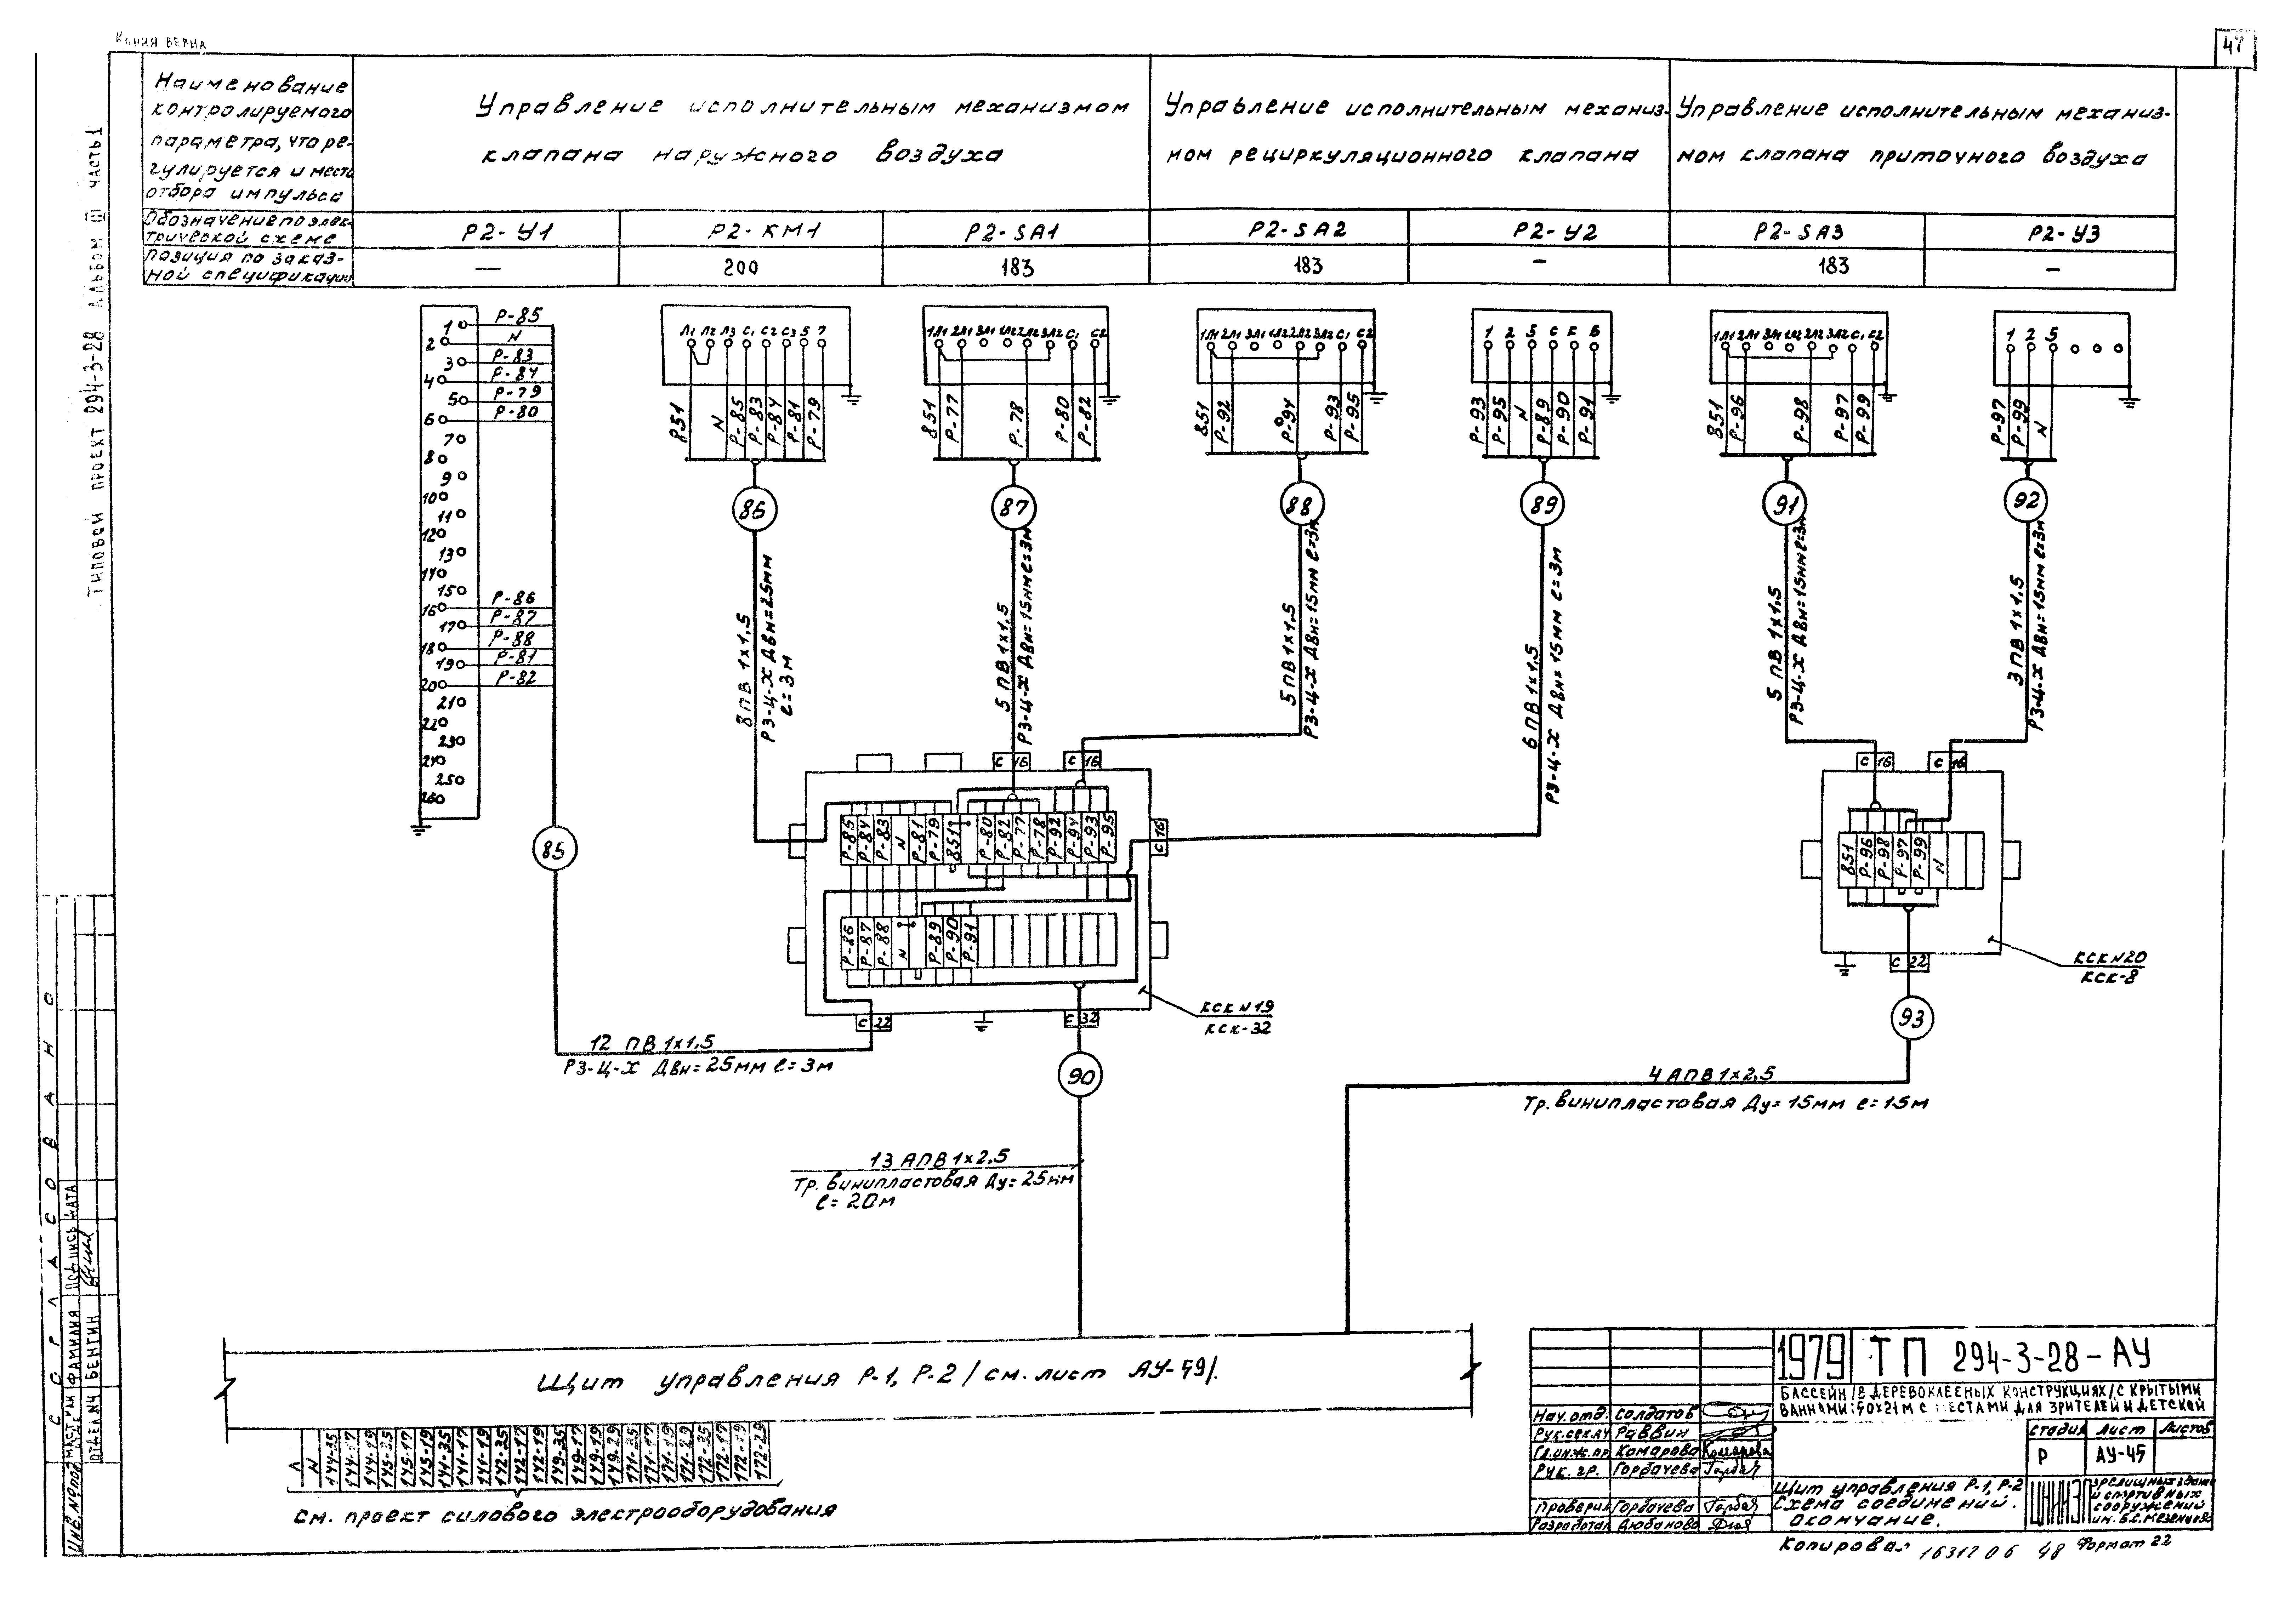 Копия верна
47
Типовой проект 294-3-28 Альбом III часть 1
Наименование
контролируемого
параметра, что ре-
гулируется и место
отбора импульса
Управление исполнительным механизмом
клапана наружного воздуха
Управление исполнительным механиз-
мом рециркуляционного клапана
Управление исполнительным механиз-
мом клапана приточного воздуха
Обозначение по элек-
трической схеме
Р2-У1
Р2-КМ1
Р2-SA1
Р2-SA2
Р2-У2
Р2-SA3
Р2-У3
Позиция по заказ-
ной спецификации
—
200
183
183
–
183
–
1 Р-85
2 N
3 Р-83
4 Р-84
5 Р-79
6 Р-80
7
8
9
10
11
12
13
14
15
16 Р-86
17 Р-87
18 Р-88
19 Р-81
20 Р-82
21
22
23
24
25
26
Л1 Л2 Л3 С1 С2 С3 5 7
851 N Р-85 Р-83 Р-84 Р-81 Р-79
1Л1 2Л1 3Л1 1Л2 2Л2 3Л2 С1 С2
851 Р-77 Р-78 Р-80 Р-82
1Л1 2Л1 3Л1 1Л2 2Л2 3Л2 С1 С2
851 Р-92 Р-94 Р-93 Р-95
1 2 5 С Б В
Р-93 Р-95 N Р-89 Р-90 Р-91
1Л1 2Л1 3Л1 1Л2 2Л2 3Л2 С1 С2
851 Р-96 Р-98 Р-97 Р-99
1 2 5
Р-97 Р-99 N
86
87
88
89
91
92
8 ПВ 1×1,5
РЗ-Ц-Х Двн=25мм
ℓ=3м
5 ПВ 1×1,5
РЗ-Ц-Х Двн=15мм ℓ=3м
5 ПВ 1×1,5
РЗ-Ц-Х Двн=15мм ℓ=3м
6 ПВ 1×1,5
РЗ-Ц-Х Двн=15мм ℓ=3м
5 ПВ 1×1,5
РЗ-Ц-Х Двн=15мм ℓ=3м
3 ПВ 1×1,5
РЗ-Ц-Х Двн=15мм ℓ=3м
С 16
С 16
С 16
С 16
С 16
85
Р-85 Р-84 Р-83 N Р-81 Р-79 851 Р-80 Р-82 Р-77 Р-78 Р-92 Р-94 Р-93 Р-95
Р-86 Р-87 Р-88 N Р-89 Р-90 Р-91
851 Р-96 Р-98 Р-97 Р-99 N
С 22
С 32
С 22
КСК N19
КСК-32
КСК N20
КСК-8
93
12 ПВ 1×1,5
РЗ-Ц-Х Двн=25мм ℓ=3м
90
4 АПВ 1×2,5
Тр. винипластовая Ду=15мм ℓ=15м
13 АПВ 1×2,5
Тр. винипластовая Ду=25мм
ℓ=20м
Щит управления Р-1, Р-2 /см. лист АУ-49/.
Л N 144-35 144-17 144-19 145-35 145-17 145-19 141-35 141-17 141-19 142-35 142-17 142-19 149-35 149-17 149-19 149-29 171-35 171-17 171-19 171-29 172-35 172-17 172-19 172-29
см. проект силового электрооборудования
Согласовано
фамилия подпись дата
Отдел АУ Бенгин
Инв. № подл
1979 ТП 294-3-28-АУ
Бассейн /в деревоклееных конструкциях/ с крытыми
ваннами 50×21м с местами для зрителей и детской
Нач. отд. Солдатов
Рук. сек. АУ Раввин
Гл. инж. пр. Комарова
Рук. гр. Горбачева
Проверил Горбачева
Разработал Дюбанова
стадия лист листов
Р АУ-45
Щит управления Р-1, Р-2
Схема соединений.
Окончание.
зрелищных зданий
и спортивных
сооружений
им. Б.С. Мезенцева
Копировал 16312 06 48 Формат 22